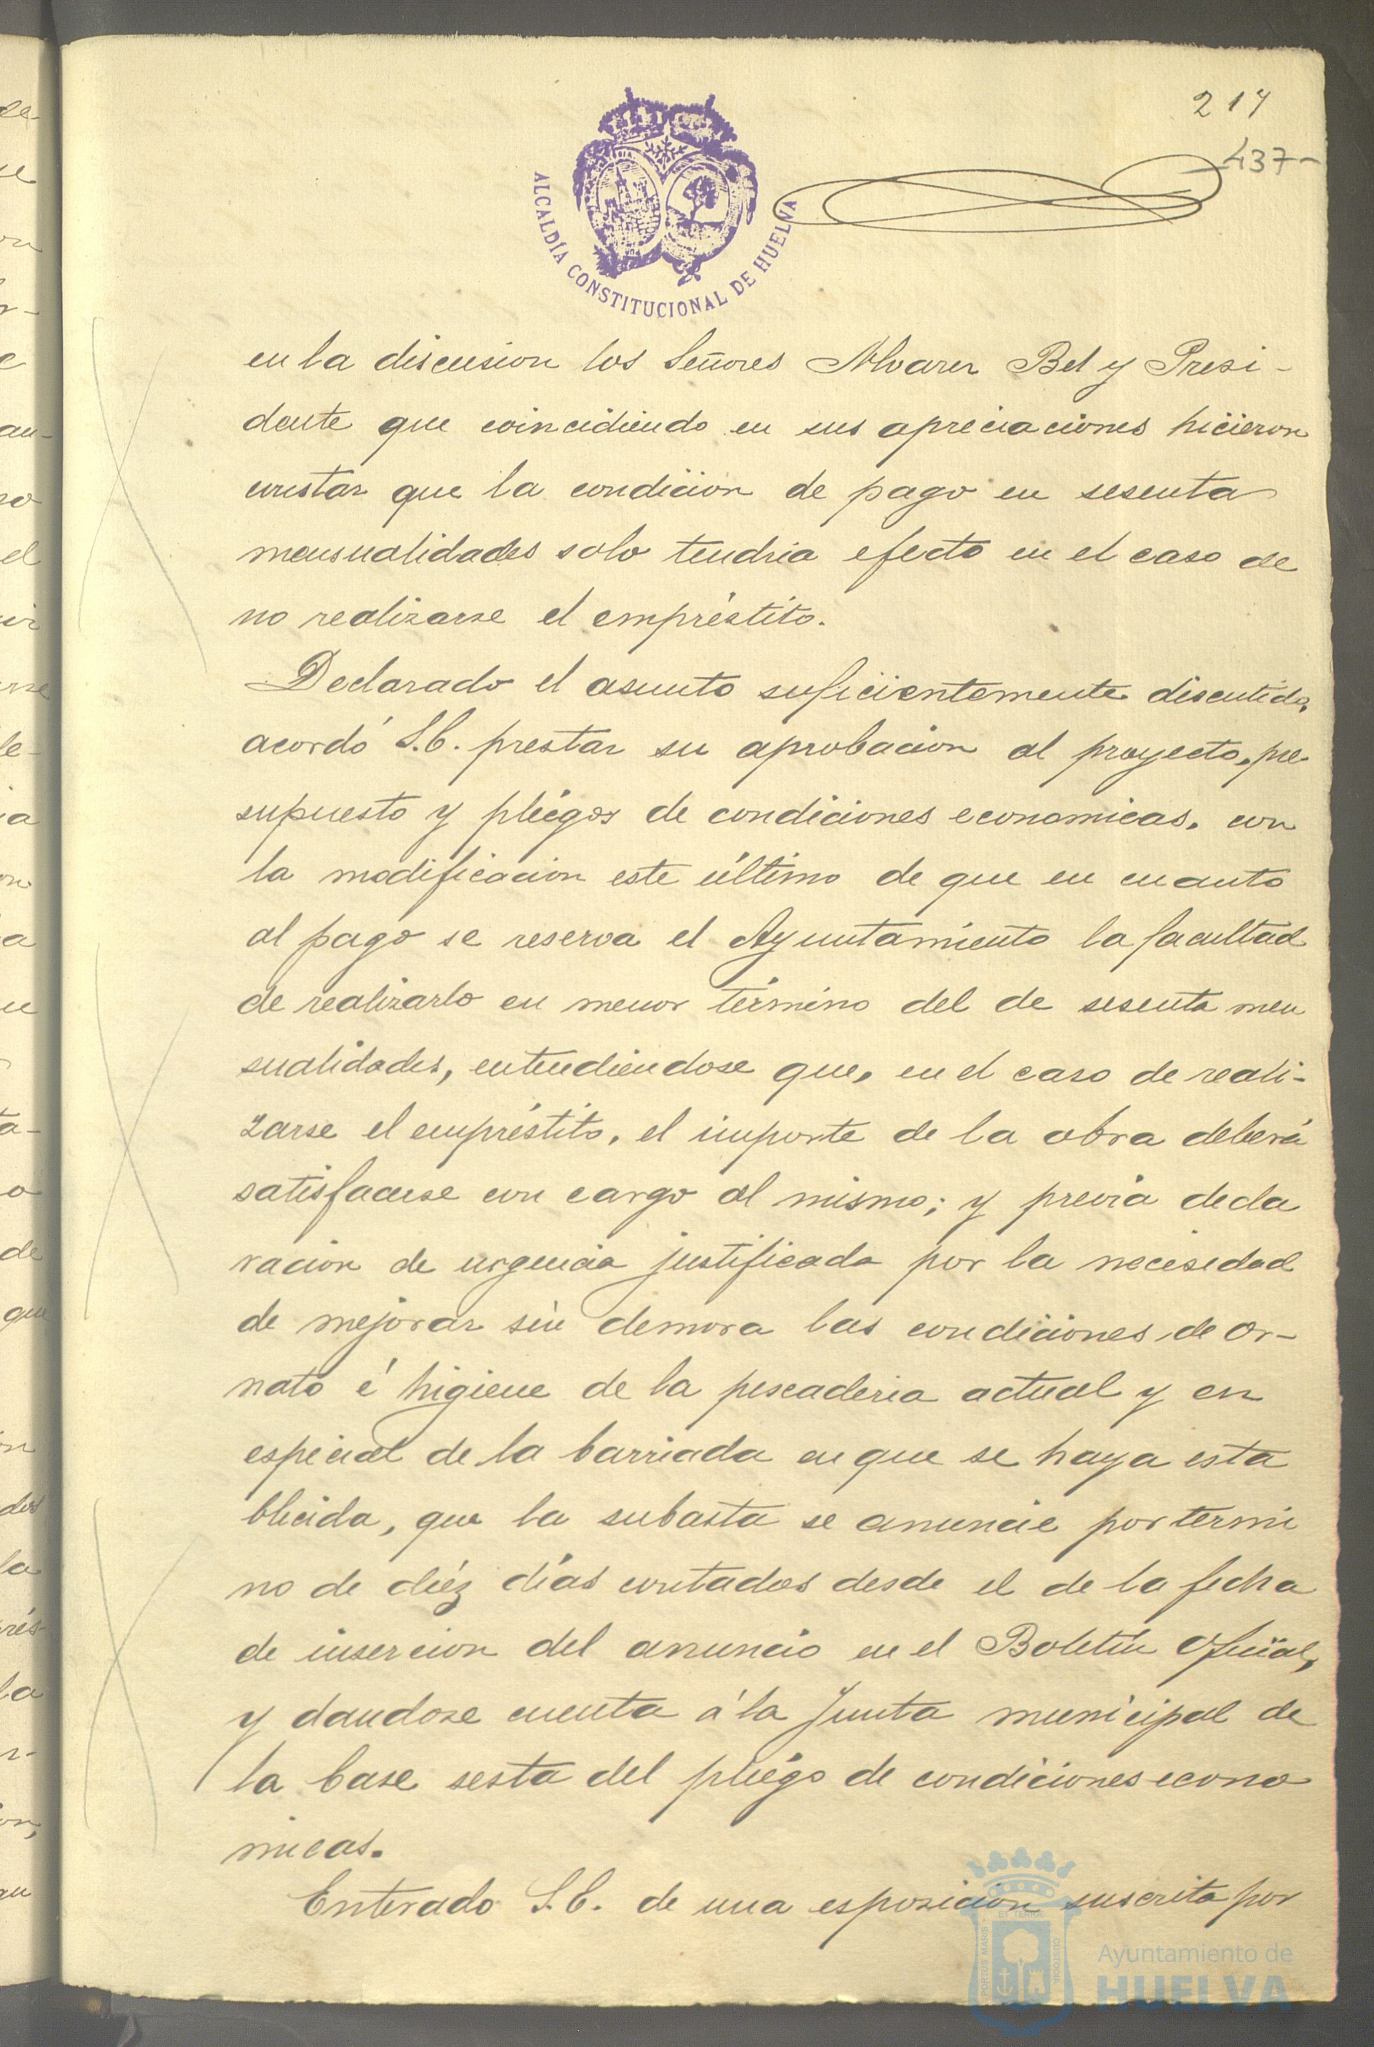 217
437-
ALCALDÍA CONSTITUCIONAL DE HUELVA
en la discusion los Señores Alvarez Bel y Presi-
dente que coincidiendo en sus apreciaciones hicieron
constar que la condicion de pago en sesenta
mensualidades solo tendria efecto en el caso de
no realizarse el empréstito.
Declarado el asunto suficientemente discutido,
acordó S.C. prestar su aprobacion al proyecto, pre
supuesto y pliegos de condiciones economicas, con
la modificacion este último de que en cuanto
al pago se reserva el Ayuntamiento la facultad
de realizarlo en menor término del de sesenta men
sualidades, entendiendose que, en el caso de reali-
zarse el empréstito, el importe de la obra deberá
satisfacerse con cargo al mismo; y previa decla
racion de urgencia justificada por la necesidad
de mejorar sin demora las condiciones de or-
nato é higiene de la pescaderia actual y en
especial de la barriada en que se haya esta
blecida, que la subasta se anuncie por termi
no de diéz días contados desde el de la fecha
de insercion del anuncio en el Boletin Oficial,
y dandose cuenta á la Junta municipal de
la base sesta del pliégo de condiciones econo
micas.
Enterado S.C. de una esposicion suscrita por
Ayuntamiento de
HUELVA